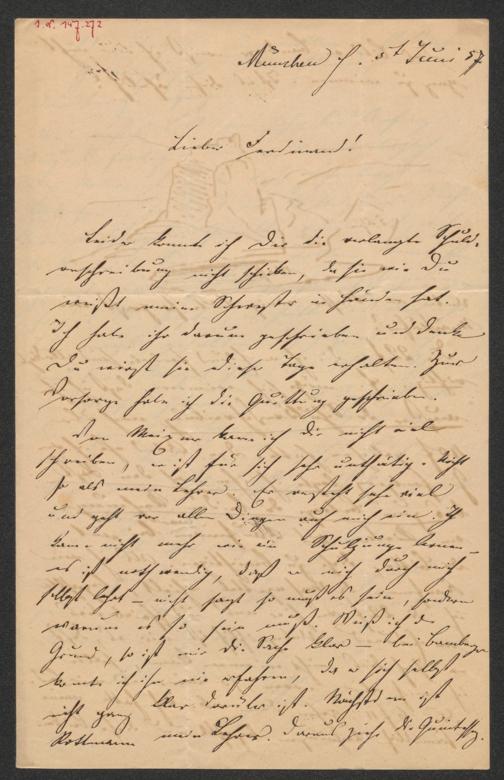 I. N. 147.272
München d. 5t Juni 57
Lieber Ferdinand!
Leider konnte ich Dir die verlangte Schuld-
verschreibung nicht schicken, da sie wie Du
weißt meine Schwester in Händen hat.
Ich habe ihr darum geschrieben und denke
Du wirst sie diese Tage erhalten. Zur
Vorsorge habe ich die Quittung geschrieben.
Von kann ich Dir nicht viel
schreiben, er ist für sich sehr unthätig. Nicht
so als mein Lehrer. Er versteht sehr viel
und geht vor allen Dingen auf mich ein. Ich
kann nicht mehr wie ein Schuljunge lernen –
es ist nothwendig, daß er mich durch mich
selbst lehrt – nicht sagt so muß es sein, sondern
warum es so sein muß. Weiß ich d.
Grund, so ist mir die Sache klar – bei Bamberger
konnte ich ihn nie erfahren, da er sich selbst
nicht ganz klar darüber ist. Nächstdem ist
Rottmann mein Lehrer. Daraus ziehe d.